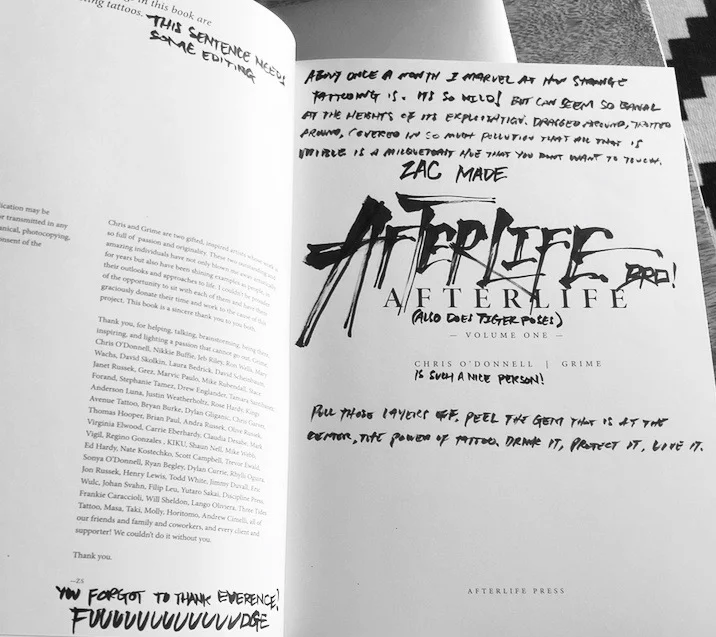 in this book are
ing tattoos.
THIS SENTENCE NEEDS
SOME EDITING
ication may be
or transmitted in any
anical, photocopying,
nsent of the
Chris and Grime are two gifted, inspired artists whose work is
so full of passion and originality. These two
amazing individuals have not only blown me away
for years but also have been shining examples as people, in
their outlooks and approaches to life. I couldn't be
of the opportunity to sit with each of them and have them
graciously donate their time and work to the cause of this
project. This book is a sincere thank you to you both.
Thank you, for helping, talking, brainstorming, being there,
inspiring, and lighting a passion that cannot go out. Grime,
Chris O'Donnell, Nikkie Buffie, Jeb Riley, Ron Wells, Mary
Wachs, David Skolkin, Laura Bedrick, David Schembaum,
Janet Russek, Grez, Marvic Paulo, Mike Rubendall,
Forand, Stephanie Tamez, Drew Englander, Tamara
Anderson Luna, Justin Weatherholtz, Rose Hardy, Kings
Avenue Tattoo, Bryan Burke, Dylan Gliganic, Chris Garver,
Thomas Hooper, Brian Paul, Andra Russek, Olive Russek,
Virginia Elwood, Carrie Eberhardy, Claudia Desabe, Mark
Vigil, Regino Gonzales, KIKU, Shaun Nell, Mike Webb,
Ed Hardy, Nate Kostechko, Scott Campbell, Trevor Ewald,
Sonya O'Donnell, Ryan Begley, Dylan Currie, Rhyls Oguni,
Jon Russek, Henry Lewis, Todd White, Jimmy Duvall, Eric
Wulc, Johan Svahn, Filip Leu, Yutaro Sakai, Discipline Press,
Frankie Caraccioli, Will Sheldon, Lango Oliviera, Three Tides
Tattoo, Masa, Taki, Molly, Horitomo, Andrew Cimelli, all of
our friends and family and coworkers, and every client and
supporter! We couldn't do it without you.
Thank you.
—ZS
YOU FORGOT TO THANK EVERENCE!
FUUUUUUUUUUUUDGE
ABOUT ONCE A MONTH I MARVEL AT HOW STRANGE
TATTOOING IS. IT'S SO WILD! BUT CAN SEEM SO BANAL
AT THE HEIGHTS OF ITS EXPLOITATION. DRAGGED AROUND, TROTTED
AROUND, COVERED IN SO MUCH POLLUTION THAT ALL THAT IS
VISIBLE IS A MILQUETOAST HUE THAT YOU DON'T WANT TO TOUCH.
ZAC MADE
AFTERLIFE BRO!
AFTERLIFE
(ALSO DOES TIGER POSES)
— VOLUME ONE —
CHRIS O'DONNELL | GRIME
IS SUCH A NICE PERSON!
PULL THOSE LAYERS OFF, PEEL THE GEM THAT IS AT THE
CENTER, THE POWER OF TATTOO. DRINK IT, PROTECT IT, LOVE IT.
AFTERLIFE PRESS